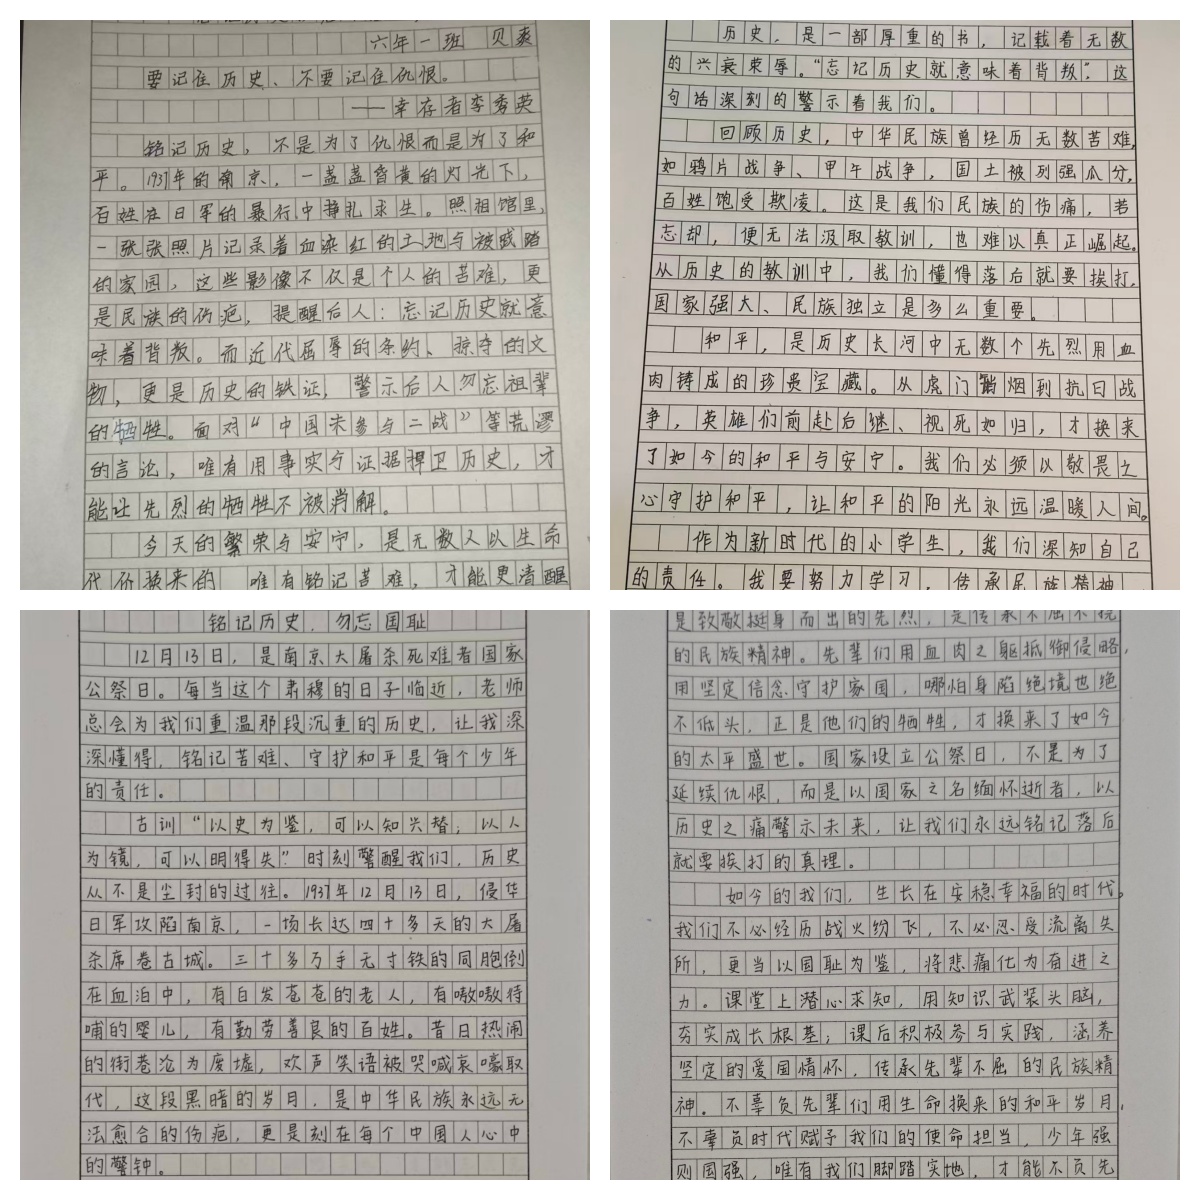 六年一班 贝爽
要记住历史、不要记住仇恨。
——幸存者李秀英
铭记历史，不是为了仇恨而是为了和
平。1937年的南京，一盏盏昏黄的灯光下，
百姓在日军的暴行中挣扎求生。照祖馆里，
一张张照片记录着血染红的土地与被践踏
的家园，这些影像不仅是个人的苦难，更
是民族的伤疤，提醒后人：忘记历史就意
味着背叛。而近代屈辱的条约、掠夺的文
物，更是历史的铁证，警示后人勿忘祖辈
的牺牲。面对“中国未参与二战”等荒谬
的言论，唯有用事实与证据捍卫历史，才
能让先烈的牺牲不被消解。
今天的繁荣与安宁，是无数人以生命
代价换来的 唯有铭记苦难，才能更清醒
历史，是一部厚重的书，记载着无数
的兴衰荣辱。“忘记历史就意味着背叛”。这
句话深刻的警示着我们。
回顾历史，中华民族曾经历无数苦难，
如鸦片战争、甲午战争，国土被列强瓜分，
百姓饱受欺凌。这是我们民族的伤痛，若
忘却，便无法汲取教训，也难以真正崛起。
从历史的教训中，我们懂得落后就要挨打，
国家强大、民族独立是多么重要。
和平，是历史长河中无数个先烈用血
肉铸成的珍贵宝藏。从虎门销烟到抗日战
争，英雄们前赴后继、视死如归，才换来
了如今的和平与安宁。我们必须以敬畏之
心守护和平，让和平的阳光永远温暖人间。
作为新时代的小学生，我们深知自己
的责任。我要努力学习，传承民族精神
铭记历史，勿忘国耻
12月13日，是南京大屠杀死难者国家
公祭日。每当这个肃穆的日子临近，老师
总会为我们重温那段沉重的历史，让我深
深懂得，铭记苦难、守护和平是每个少年
的责任。
古训“以史为鉴，可以知兴替；以人
为镜，可以明得失”时刻警醒我们，历史
从不是尘封的过往。1937年12月13日，侵华
日军攻陷南京，一场长达四十多天的大屠
杀席卷古城。三十多万手无寸铁的同胞倒
在血泊中，有白发苍苍的老人，有嗷嗷待
哺的婴儿，有勤劳善良的百姓。昔日热闹
的街巷沦为废墟，欢声笑语被哭喊哀嚎取
代，这段黑暗的岁月，是中华民族永远无
法愈合的伤疤，更是刻在每个中国人心中
的警钟。
是致敬挺身而出的先烈，是传承不屈不挠
的民族精神。先辈们用血肉之躯抵御侵略，
用坚定信念守护家国，哪怕身陷绝境也绝
不低头，正是他们的牺牲，才换来了如今
的太平盛世。国家设立公祭日，不是为了
延续仇恨，而是以国家之名缅怀逝者，以
历史之痛警示未来，让我们永远铭记落后
就要挨打的真理。
如今的我们，生长在安稳幸福的时代。
我们不必经历战火纷飞，不必忍受流离失
所，更当以国耻为鉴，将悲痛化为奋进之
力。课堂上潜心求知，用知识武装头脑，
夯实成长根基；课后积极参与实践，涵养
坚定的爱国情怀，传承先辈不屈的民族精
神。不辜负先辈们用生命换来的和平岁月，
不辜负时代赋予我们的使命担当，少年强
则国强，唯有我们脚踏实地，才能不负先